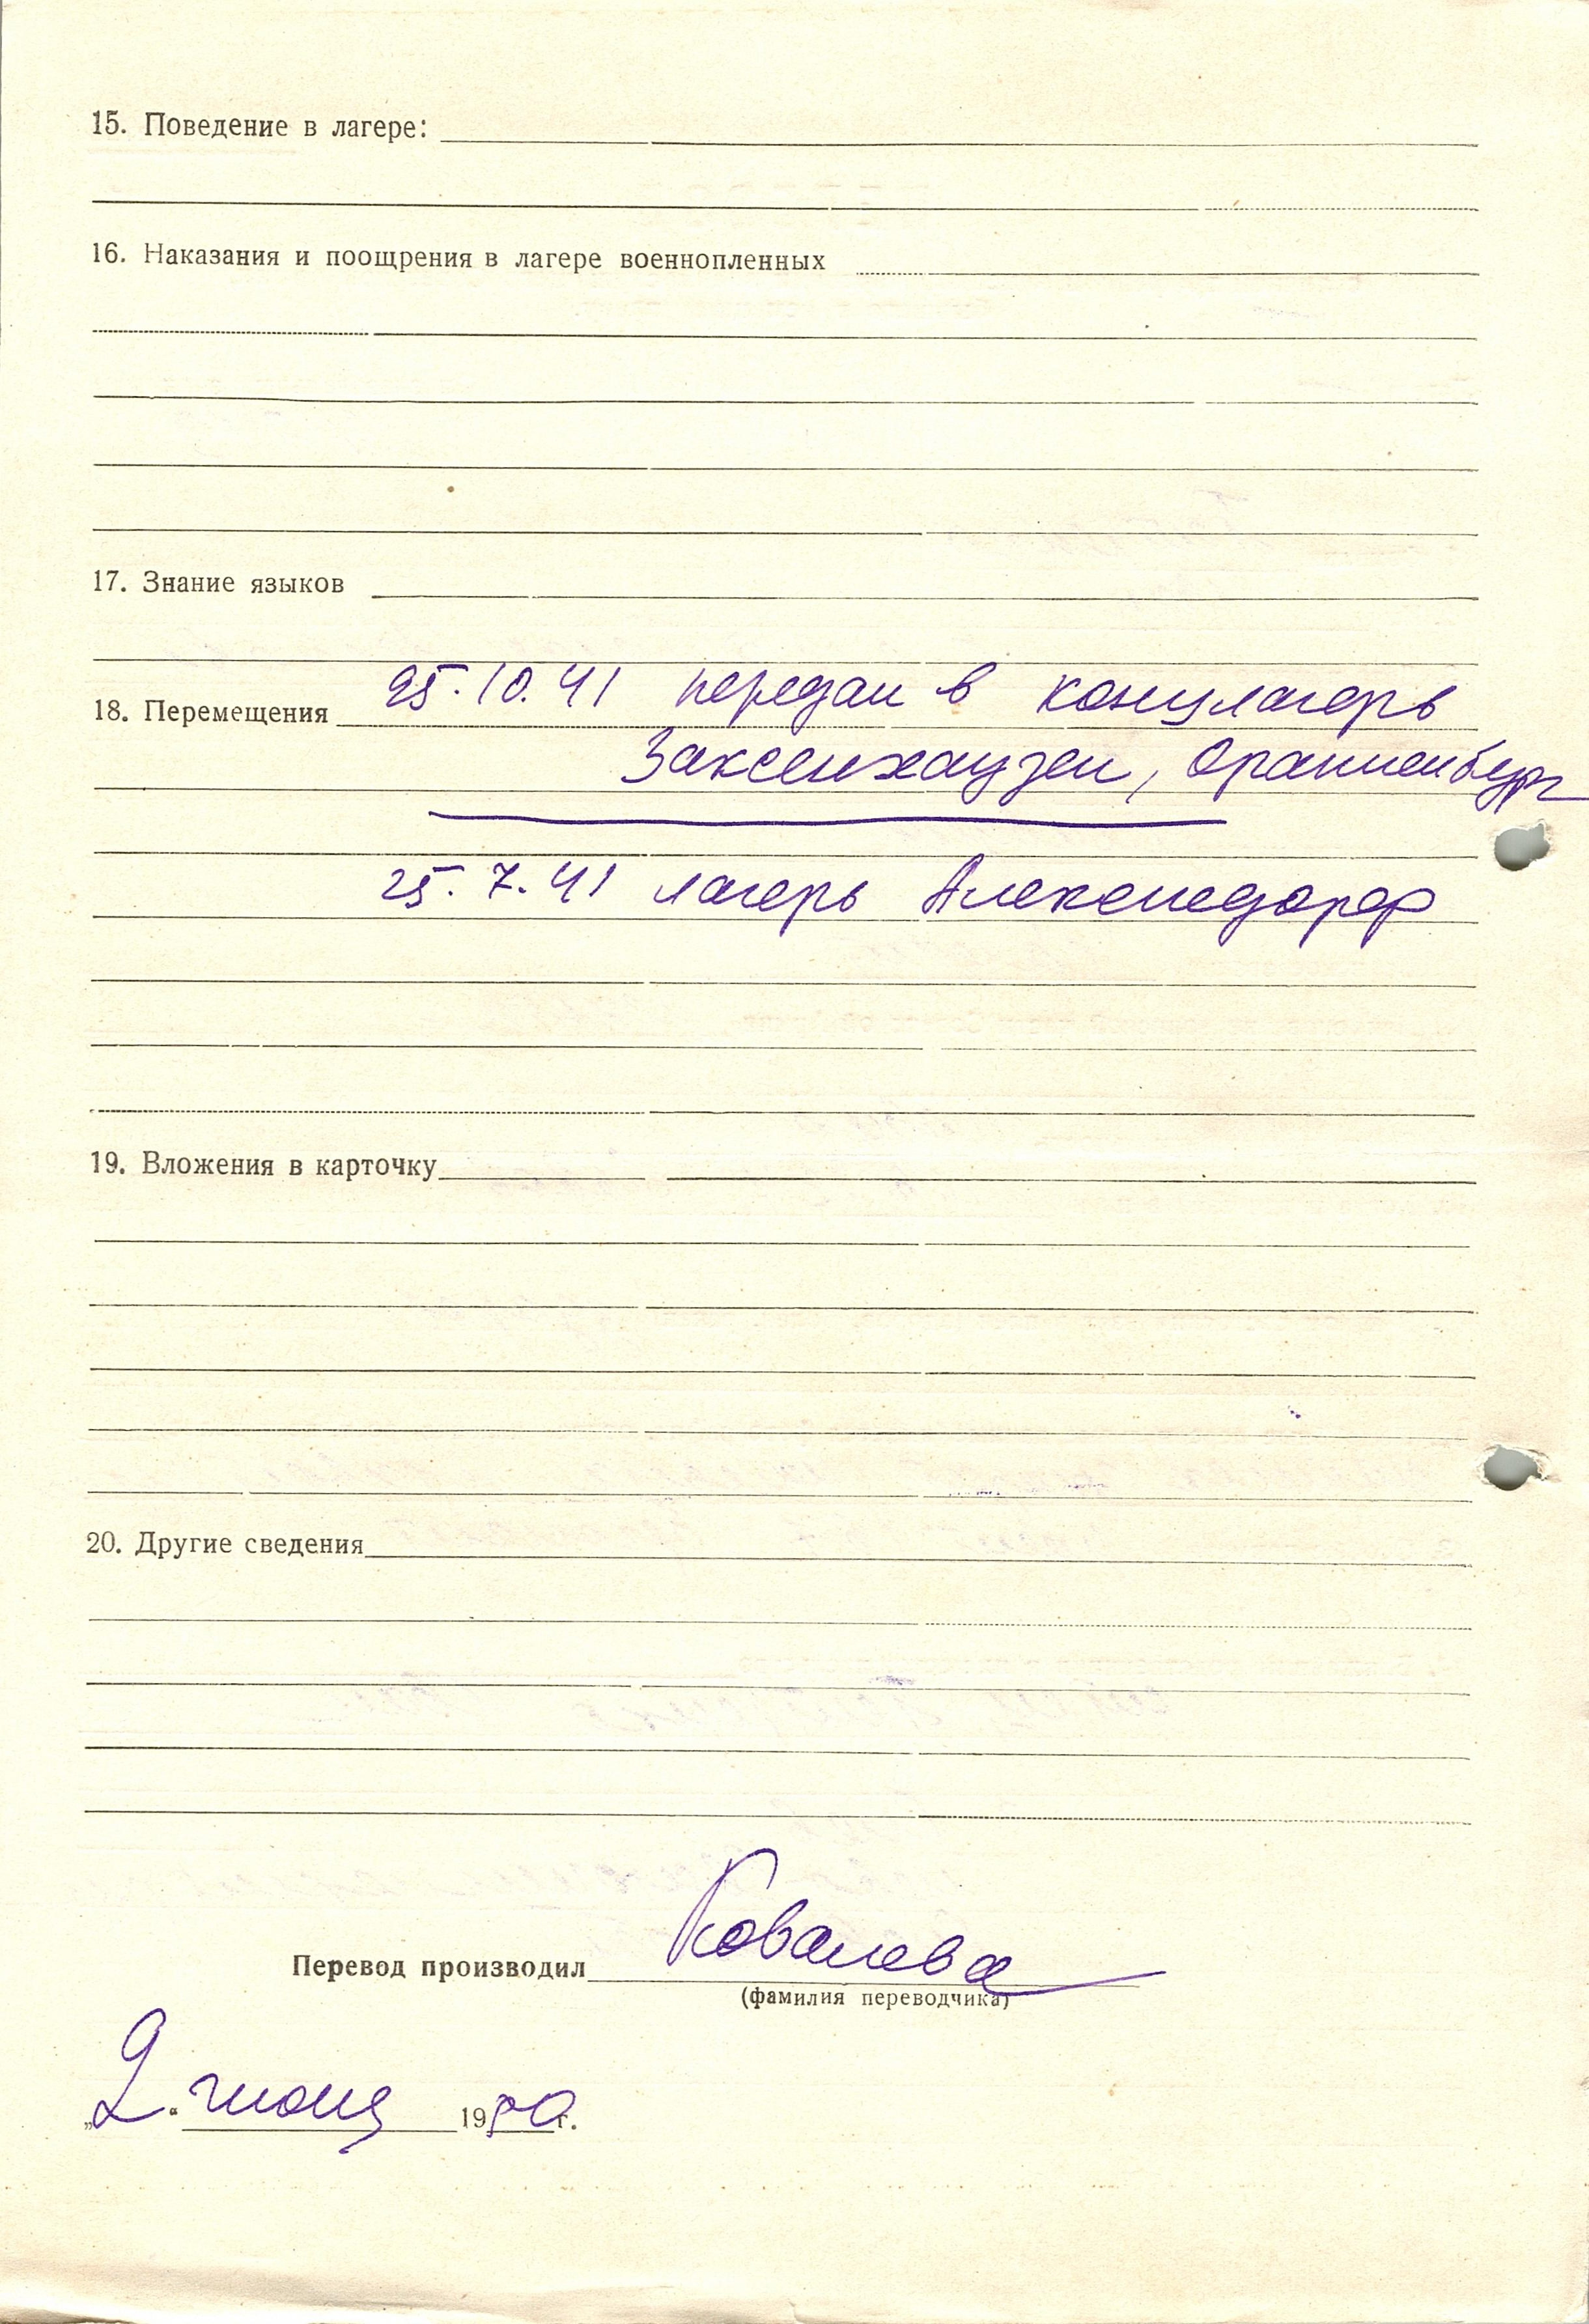 15. Поведение в лагере:
16. Наказания и поощрения в лагере военнопленных
17. Знание языков
25.10.41 передан в концлагерь
18. Перемещения
Заксенхаузен, Ораниенбург
25.7.41 лагерь Алексисдорф
19. Вложения в карточку
20. Другие сведения
Перевод производил Ковалева
(фамилия переводчика)
„2.“ июня 1950 г.